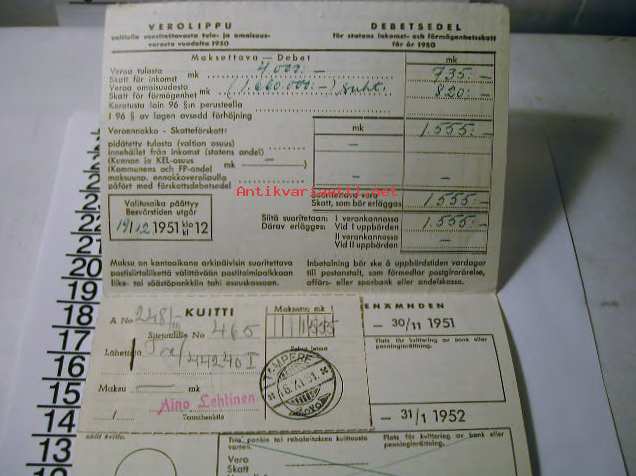 VEROLIPPU
valtiolle suoritettavasta tulo- ja omaisuus-
verosta vuodelta 1950
DEBETSEDEL
för statens inkomst- och förmögenhetsskatt
för år 1950
Maksettava — Debet
mk
Veroa tulosta
Skatt för inkomst mk 4.000:— 735:—
Veroa omaisuudesta
Skatt för förmögenhet mk (1.660.000:—) 820:—
Korotusta lain 96 §:n perusteella
I 96 § av lagen avsedd förhöjning
Veroennakko - Skatteförskott:
mk
1.555:—
pidätetty tulosta (valtion osuus)
innehållet från inkomst (statens andel)
(Kunnan ja KEL-osuus
(Kommunens och FP-andel mk — )
maksuunp. ennakkoverolipulla
påfört med förskottsdebetsedel
Antikvariaatti.net
Suoritettava vero
Skatt, som bör erläggas 1.555:—
Valitusaika päättyy
Besvärstiden utgår
19/12 1951 klo kl 12
Siitä suoritetaan:
Därav erlägges:
I verankannossa
Vid I uppbörden 1.555:—
II verankannossa
Vid II uppbörden —
Maksu on kantoaikana arkipäivisin suoritettava
postisiirtoliikettä välittävään postitoimipaikkaan
liike- tai säästöpankkiin tahi osuuskassaan.
Inbetalning bör ske å uppbördstiden vardagar
till postanstalt, som förmedlar postgirorörelse,
affärs- eller sparbank eller andelskassa.
KUITTI
A No 248/
Siirtotilille No 465
Maksettu mk
1555
Lähettäjä
44240 I
Maksu — mk
Aino Lehtinen
TAMPERE
ENÄMNDEN
— 30/11 1951
Plats för kvittering av bank eller
penninginrättning.
— 31/1 1952
Plats för kvittering av bank eller
penninginrättning.
Vero
Skatt
22
21
20
19
18
17
16
15
14
13